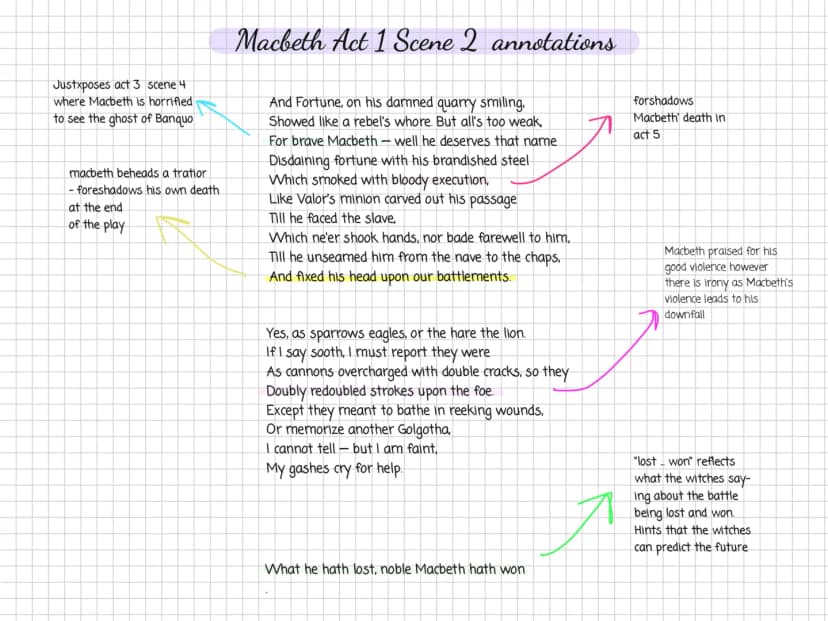 Macbeth Act 1 Scene 2 annotations
Justxposes act 3 scene 4
where Macbeth is horrified
to see the ghost of Banquo
macbeth beheads a tratior
- foreshadows his own death
at the end
of the play
And Fortune, on his damned quarry smiling,
Showed like a rebel's whore. But all's too weak,
For brave Macbeth – well he deserves that name
Disdaining fortune with his brandished steel
Which smoked with bloody execution,
Like Valor's minion carved out his passage
Till he faced the slave,
Which ne'er shook hands, nor bade farewell to him,
Till he unseamed him from the nave to the chaps,
And fixed his head upon our battlements.
forshadows
Macbeth' death in
act 5
Macbeth praised for his
good violence however
there is irony as Macbeth's
violence leads to his
downfall
Yes, as sparrows eagles, or the hare the lion.
If I say sooth, I must report they were
As cannons overcharged with double cracks, so they
Doubly redoubled strokes upon the foe.
Except they meant to bathe in reeking wounds,
Or memorize another Golgotha,
I cannot tell – but I am faint,
My gashes cry for help.
"lost .. won" reflects
what the witches say-
ing about the battle
being lost and won.
Hints that the witches
can predict the future
What he hath lost, noble Macbeth hath won
.